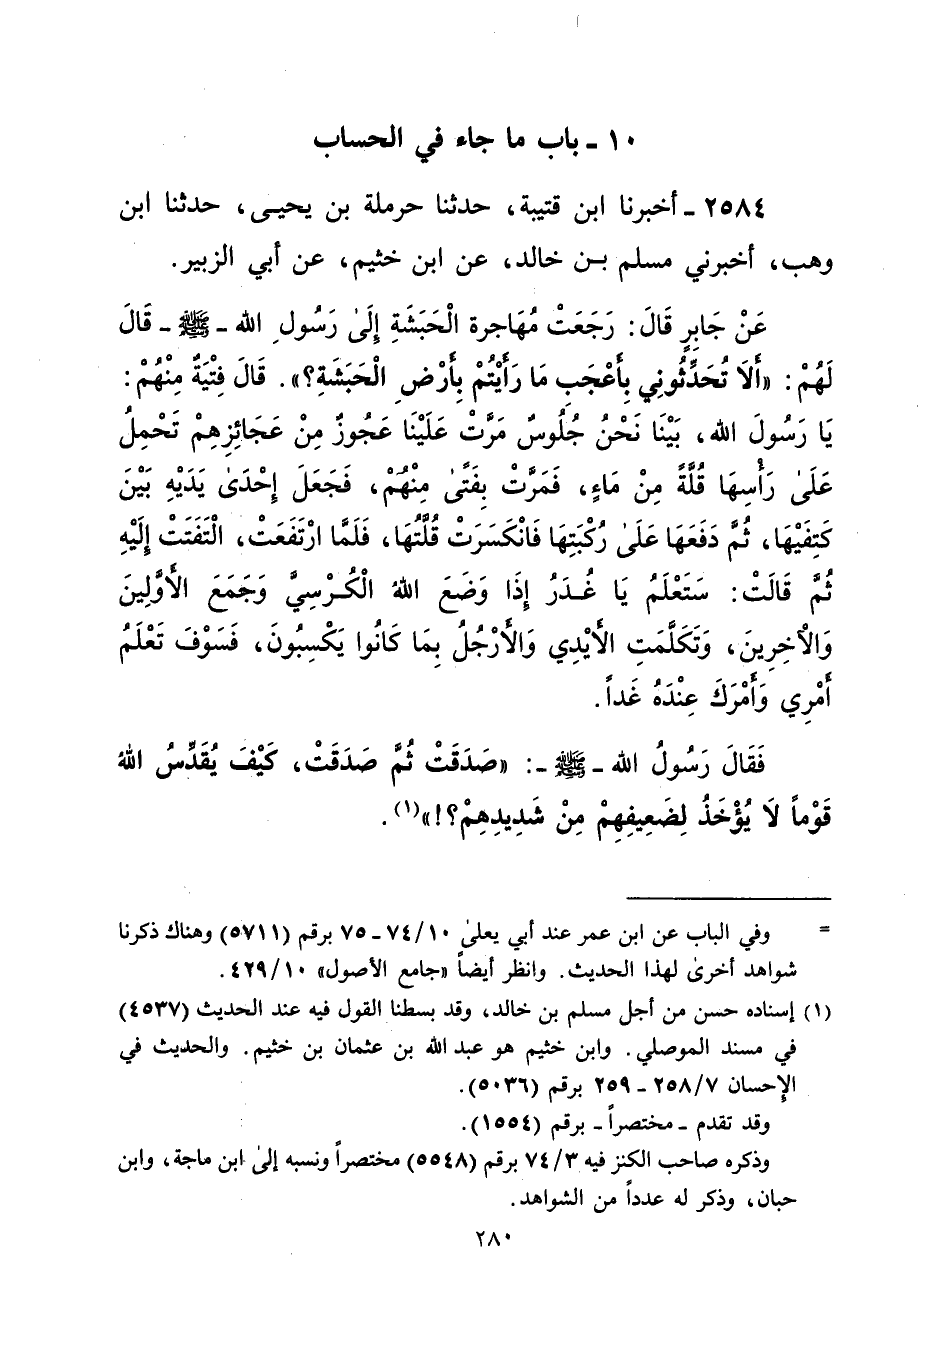 ١٠ - باب ما جاء في الحساب
٢٥٨٤ - أخبرنا ابن قتيبة، حدثنا حرملة بن يحيـى، حدثنا ابن
وهب، أخبرني مسلم بـن خالد، عن ابن خثيم، عن أبي الزبير.
عَنْ جَابِرٍ قَالَ: رَجَعَتْ مُهَاجرة الْحَبَشَةِ إِلَىٰ رَسُولِ الله - ﷺ - قَالَ
لَهُمْ: «أَلَا تُحَدِّثُونِي بِأَعْجَبِ مَا رَأَيْتُمْ بِأَرْضِ الْحَبَشَةِ؟». قَالَ فِتْيَةٌ مِنْهُمْ:
يَا رَسُولَ الله، بَيْنَا نَحْنُ جُلُوسٌ مَرَّتْ عَلَيْنَا عَجُوزٌ مِنْ عَجَائِزِهِمْ تَحْمِلُ
عَلَىٰ رَأْسِهَا قُلَّةً مِنْ مَاءٍ، فَمَرَّتْ بِفَتًىٰ مِنْهُمْ، فَجَعَلَ إِحْدَىٰ يَدَيْهِ بَيْنَ
كَتِفَيْهَا، ثُمَّ دَفَعَهَا عَلَىٰ رُكْبَتِهَا فَانْكَسَرَتْ قُلَّتُهَا، فَلَمَّا ارْتَفَعَتْ، الْتَفَتَتْ إِلَيْهِ
ثُمَّ قَالَتْ: سَتَعْلَمُ يَا غُـدَرُ إِذَا وَضَعَ اللهُ الْكُـرْسِيَّ وَجَمَعَ الأَوَّلِينَ
وَالْآخِرِينَ، وَتَكَلَّمَتِ الأَيْدِي وَالأَرْجُلُ بِمَا كَانُوا يَكْسِبُونَ، فَسَوْفَ تَعْلَمُ
أَمْرِي وَأَمْرَكَ عِنْدَهُ غَداً.
فَقَالَ رَسُولُ الله - ﷺ -: «صَدَقَتْ ثُمَّ صَدَقَتْ، كَيْفَ يُقَدِّسُ اللهُ
قَوْماً لَا يُؤْخَذُ لِضَعِيفِهِمْ مِنْ شَدِيدِهِمْ؟!»(١).
= وفي الباب عن ابن عمر عند أبي يعلىٰ ٧٤/١٠ - ٧٥ برقم (٥٧١١) وهناك ذكرنا
شواهد أخرىٰ لهذا الحديث. وانظر أيضاً «جامع الأصول» ٤٢٩/١٠.
(١) إسناده حسن من أجل مسلم بن خالد، وقد بسطنا القول فيه عند الحديث (٤٥٣٧)
في مسند الموصلي. وابن خثيم هو عبد الله بن عثمان بن خثيم. والحديث في
الإحسان ٢٥٨/٧ - ٢٥٩ برقم (٥٠٣٦).
وقد تقدم - مختصراً - برقم (١٥٥٤).
وذكره صاحب الكنز فيه ٧٤/٣ برقم (٥٥٤٨) مختصراً ونسبه إلىٰ ابن ماجة، وابن
حبان، وذكر له عدداً من الشواهد.
٢٨٠